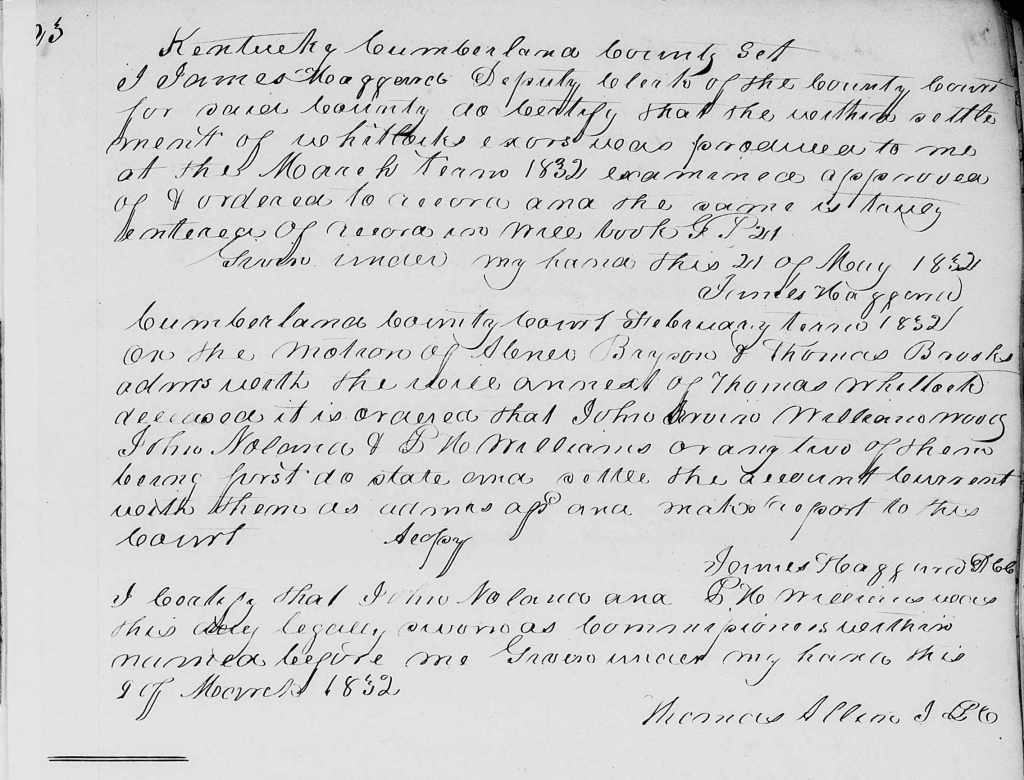 23
Kentucky Cumberland County Set
I James Haggard Deputy Clerk of the County Court
for said County do Certify that the within settle
ment of Whitlocks exors was produced to me
at the March term 1832 examined approved
of & ordered to record and the same is truly
entered of record in Will book G P 21
Given under my hand this 21 of May 1832
James Haggard
Cumberland County Court February term 1832
On the motion of Abner Bryson & Thomas Brooks
admrs with the will annext of Thomas Whitlock
deceased it is ordered that John Irvin William Wood
John Noland & P H Williams or any two of them
being first do state and settle the account Current
with them as admrs afd and make report to this
Court A copy
James Haggard DCC
I Certify that John Noland and P H Williams was
this day legally sworn as Commissioners within
named before me Given under my hand this
9 of March 1832
Thomas Allen J P C C